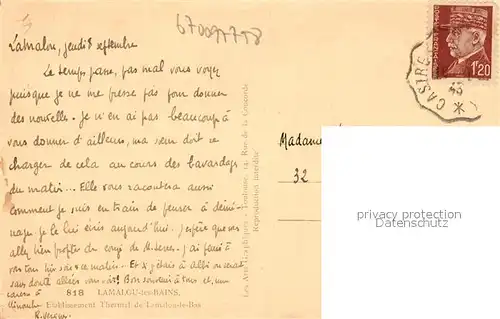 67009778
Lamalou, jeudi 8 septembre
Le temps passe, pas mal vous voyez
puisque je ne me presse pas pour donner
des nouvelles. Je n'en ai pas beaucoup à
vous donner d'ailleurs, ma sœur doit se
charger de cela au cours des bavardages
du matin... Elle vous racontera aussi
comment je suis en train de penser à
je le lui écris aujourd'hui. J'espère que vous
allez bien profiter du congé de
vos tous hier soir à ce matin. Et à Albi on serait
sans doute allées vous voir! Bon souvenir à tous et, une
caresse à
Minouche
818 LAMALOU-les-BAINS.
Etablissement Thermal de Lamalou-le-Bas
Les Arts Graphiques, Toulouse, 14, Rue de la Concorde
Reproduction interdite
Madame
32
CASTRE
43
1f20
privacy protection
Datenschutz